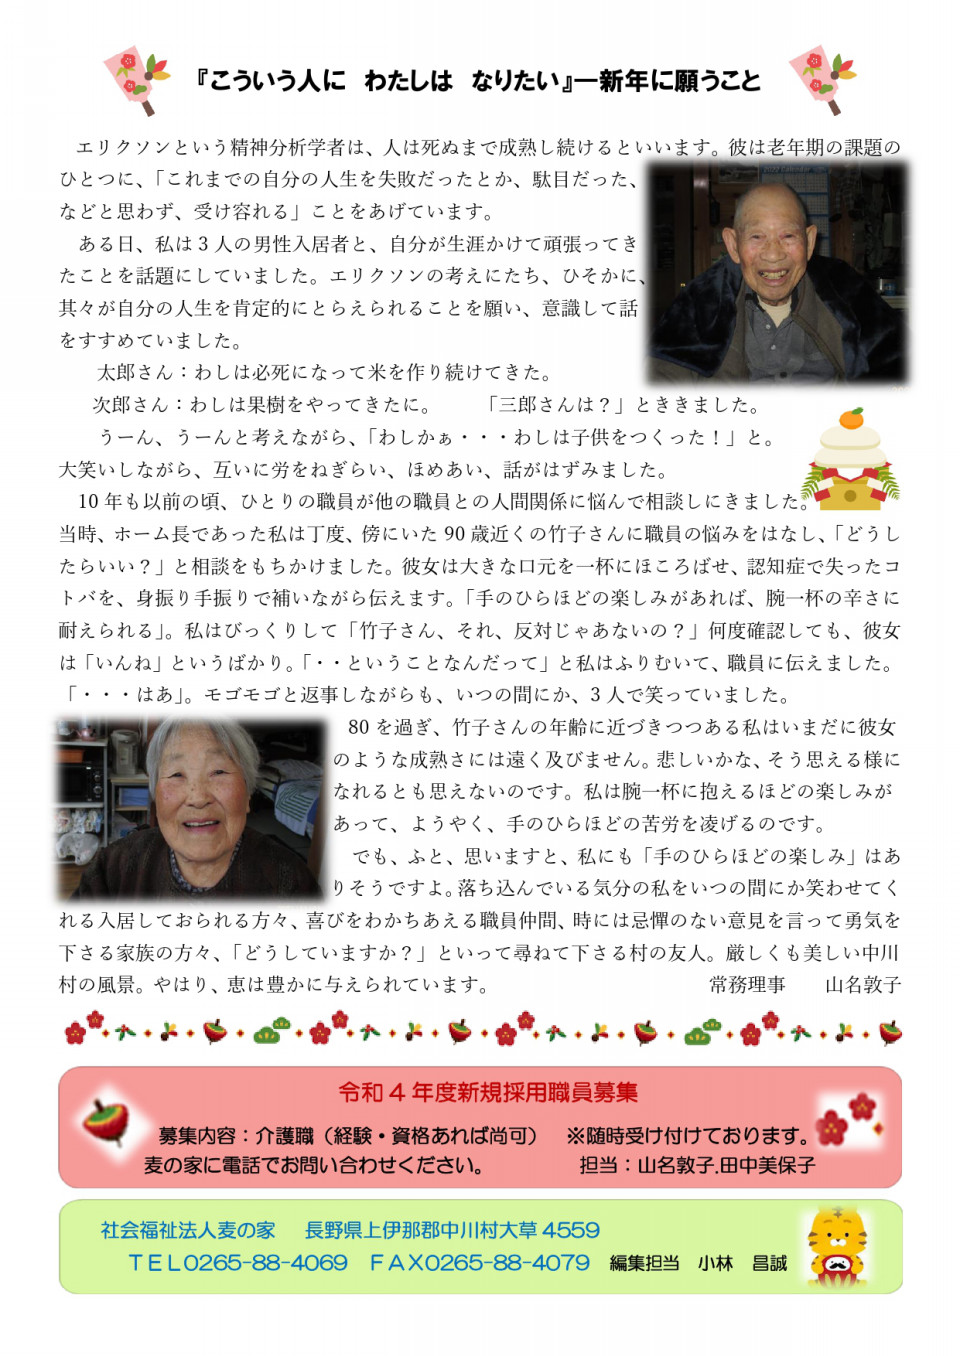 『こういう人に　わたしは　なりたい』―新年に願うこと
エリクソンという精神分析学者は、人は死ぬまで成熟し続けるといいます。彼は老年期の課題の
ひとつに、「これまでの自分の人生を失敗だったとか、駄目だった、
などと思わず、受け容れる」ことをあげています。
ある日、私は 3 人の男性入居者と、自分が生涯かけて頑張ってき
たことを話題にしていました。エリクソンの考えにたち、ひそかに、
其々が自分の人生を肯定的にとらえられることを願い、意識して話
をすすめていました。
太郎さん：わしは必死になって米を作り続けてきた。
次郎さん：わしは果樹をやってきたに。　　「三郎さんは？」とききました。
うーん、うーんと考えながら、「わしかぁ・・・わしは子供をつくった！」と。
大笑いしながら、互いに労をねぎらい、ほめあい、話がはずみました。
10 年も以前の頃、ひとりの職員が他の職員との人間関係に悩んで相談しにきました。
当時、ホーム長であった私は丁度、傍にいた 90 歳近くの竹子さんに職員の悩みをはなし、「どうし
たらいい？」と相談をもちかけました。彼女は大きな口元を一杯にほころばせ、認知症で失ったコ
トバを、身振り手振りで補いながら伝えます。「手のひらほどの楽しみがあれば、腕一杯の辛さに
耐えられる」。私はびっくりして「竹子さん、それ、反対じゃあないの？」何度確認しても、彼女
は「いんね」というばかり。「・・ということなんだって」と私はふりむいて、職員に伝えました。
「・・・はあ」。モゴモゴと返事しながらも、いつの間にか、3 人で笑っていました。
80 を過ぎ、竹子さんの年齢に近づきつつある私はいまだに彼女
のような成熟さには遠く及びません。悲しいかな、そう思える様に
なれるとも思えないのです。私は腕一杯に抱えるほどの楽しみが
あって、ようやく、手のひらほどの苦労を凌げるのです。
でも、ふと、思いますと、私にも「手のひらほどの楽しみ」はあ
りそうですよ。落ち込んでいる気分の私をいつの間にか笑わせてく
れる入居しておられる方々、喜びをわかちあえる職員仲間、時には忌憚のない意見を言って勇気を
下さる家族の方々、「どうしていますか？」といって尋ねて下さる村の友人。厳しくも美しい中川
村の風景。やはり、恵は豊かに与えられています。　　　　常務理事　　山名敦子
令和 4 年度新規採用職員募集
募集内容：介護職（経験・資格あれば尚可）　※随時受け付けております。
麦の家に電話でお問い合わせください。　　　　担当：山名敦子.田中美保子
社会福祉法人麦の家　長野県上伊那郡中川村大草 4559
ＴＥＬ0265-88-4069　ＦＡＸ0265-88-4079　編集担当　小林　昌誠